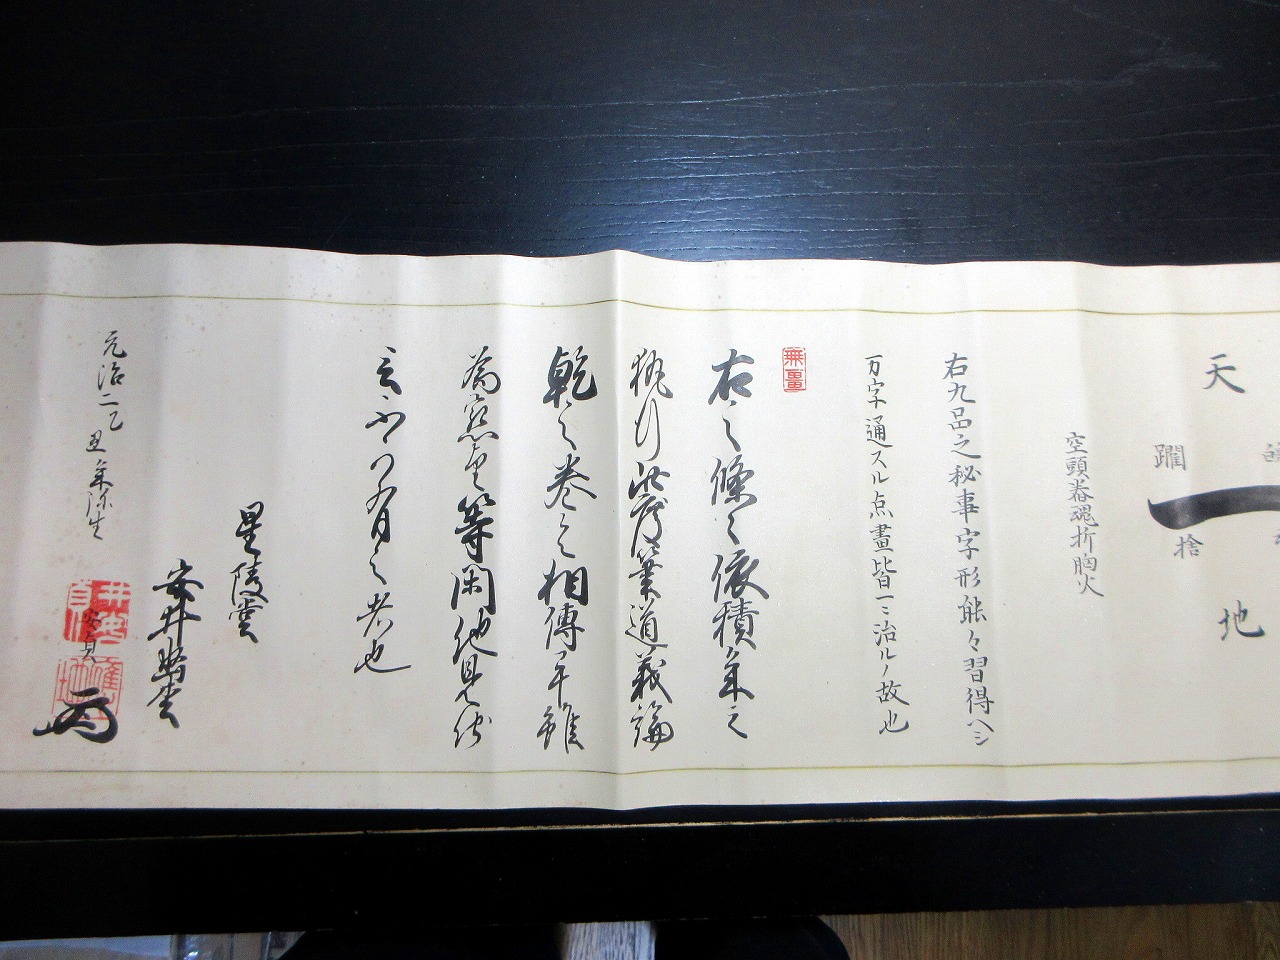 天
地
躙
捨
空頭巻魂折胸火
右九品之秘事字形能々習得ヘシ
万字通スル点畫皆一ミ治ルノ故也
無畺
右之條々依積年之
執行此度筆道義論
乾之巻令相傳畢雖
為懇望等閑他見他
言不可有之者也
星陵堂
安井
元治二乙丑年弥生